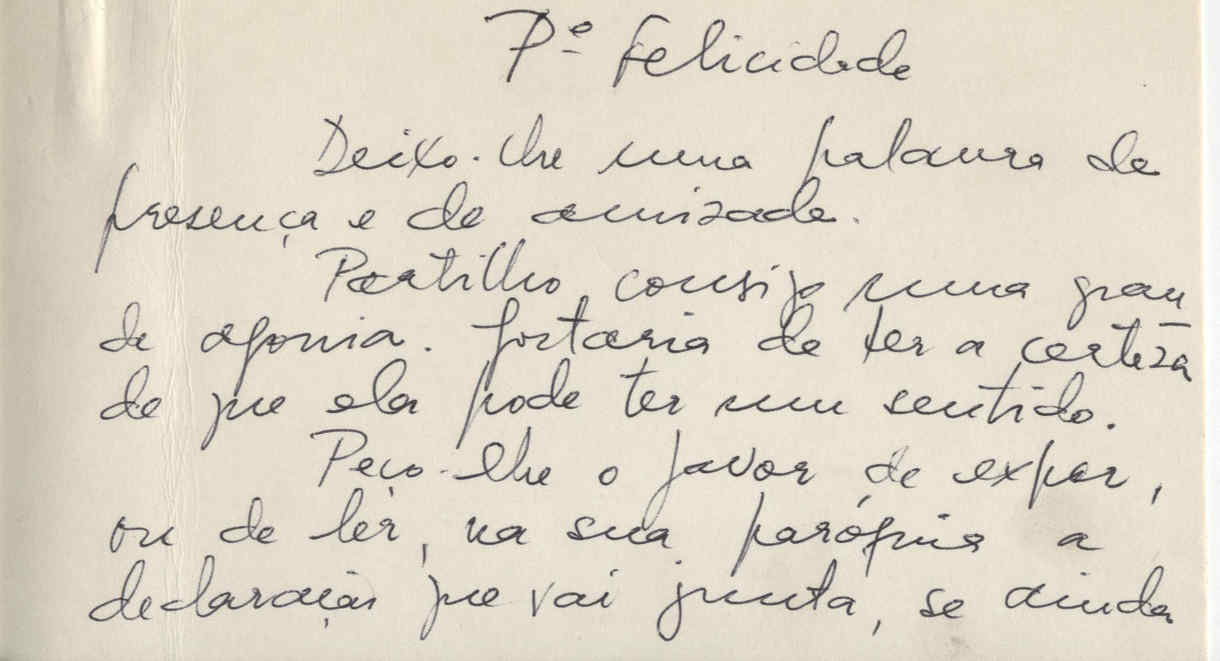 Pe Felicidade
Deixo-lhe uma palavra de
presença e de amizade.
Partilho consigo uma gran
de agonia. Gostaria de ter a certeza
de que ela pode ter um sentido.
Peço-lhe o favor de expor,
ou de ler, na sua paróquia a
declaração que vai junta, se ainda